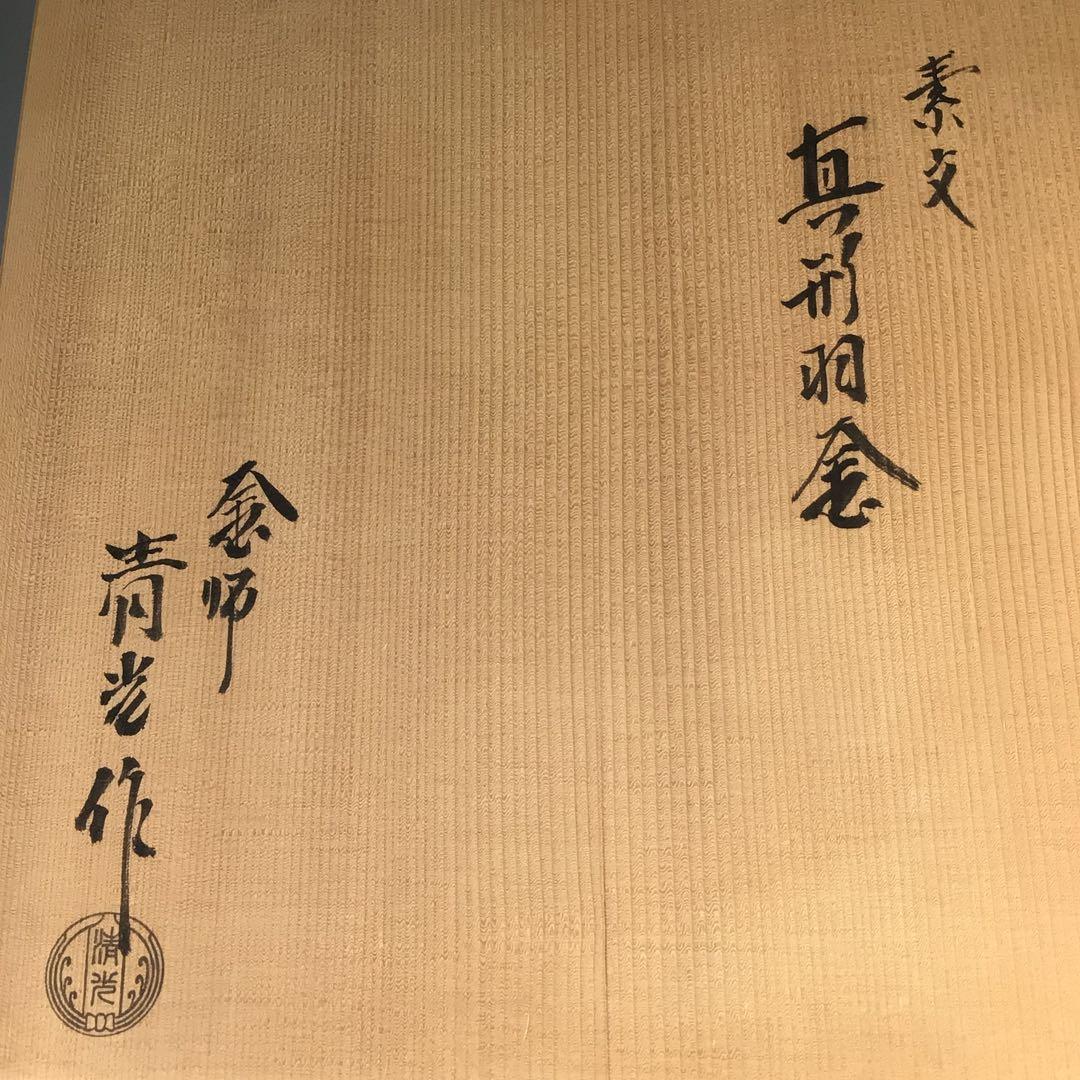 素文
真形羽釜
釜師
青光作
清光